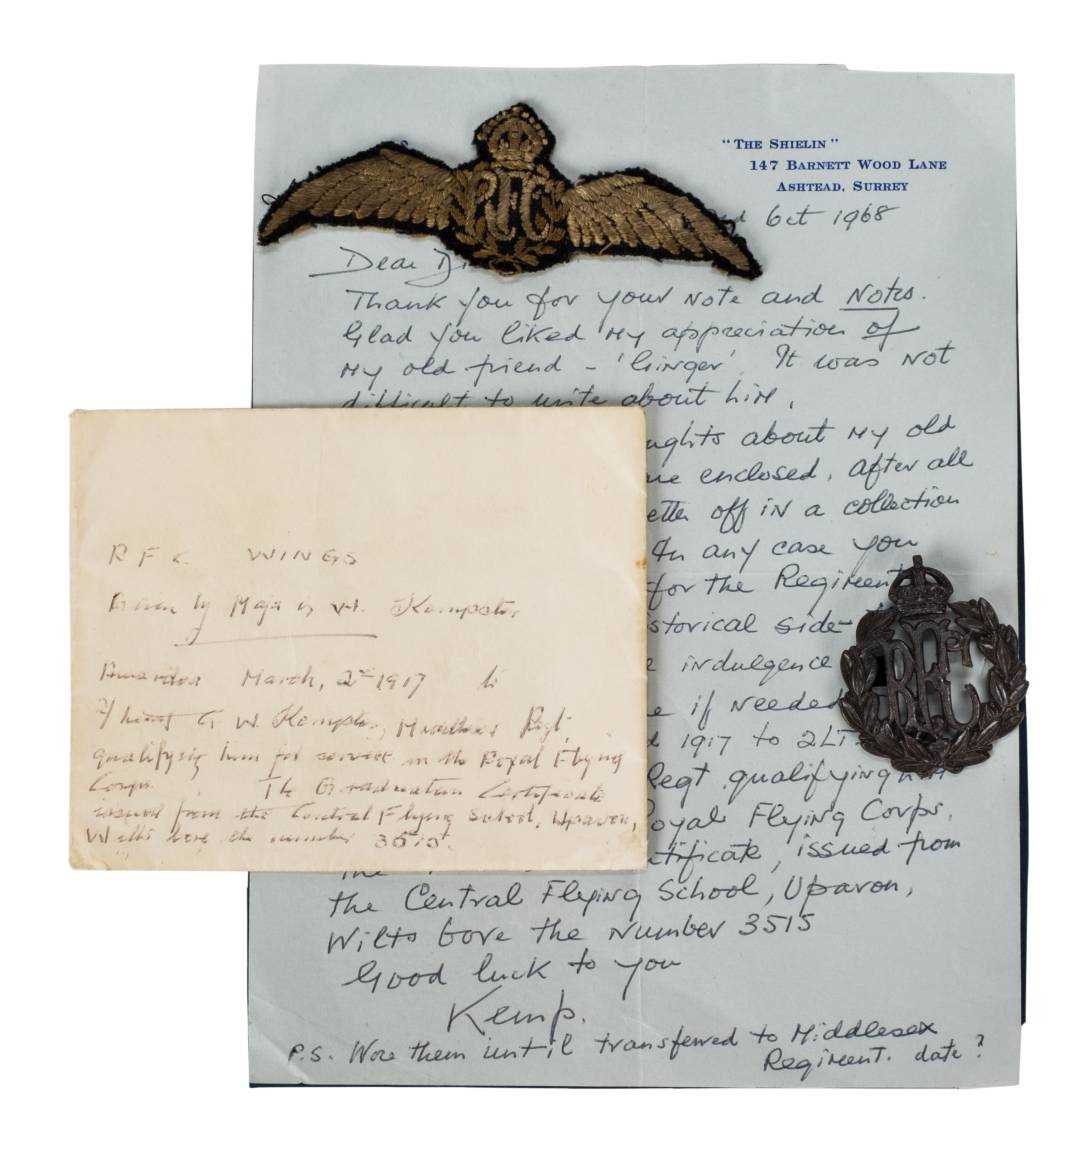 "THE SHIELIN"
147 BARNETT WOOD LANE
ASHTEAD, SURREY
Oct 1968
Dear
Thank you for your note and Notes.
Glad you liked my appreciation of
my old friend - 'Ginger'. It was not
difficult to write about him.
about my old
enclosed. After all
off in a collection
In any case you
for the Regiment
side-
indulgence
if needed
1917 to 2LT.
Regt. qualifying
Royal Flying Corps.
issued from
the Central Flying School, Upavon,
Wilts bore the number 3515
Good luck to you
Kemp.
P.S. Wore them until transferred to Middlesex
Regiment. date?
RFC
RFC
RFC WINGS
by Major Kempster
Awarded March, 2nd 1917 to
G W Kempster, Regt,
qualifying him for service in the Royal Flying
Corps. The Graduation Certificate
issued from the Central Flying School, Upavon,
Wilts bore the number 3515.